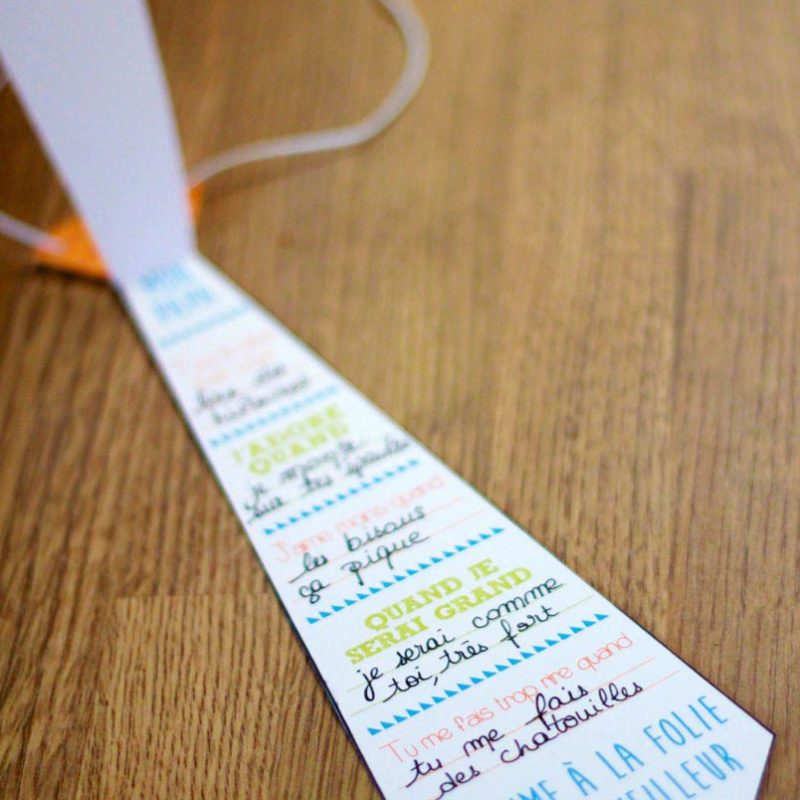 J'ADORE
QUAND
je monte
sur tes épaules
J'aime moins quand
les bisous
ça pique
QUAND JE
SERAI GRAND
je serai comme
toi, très fort
Tu me fais trop rire quand
tu me fais
des chatouilles
IME À LA FOLIE
EILLEUR